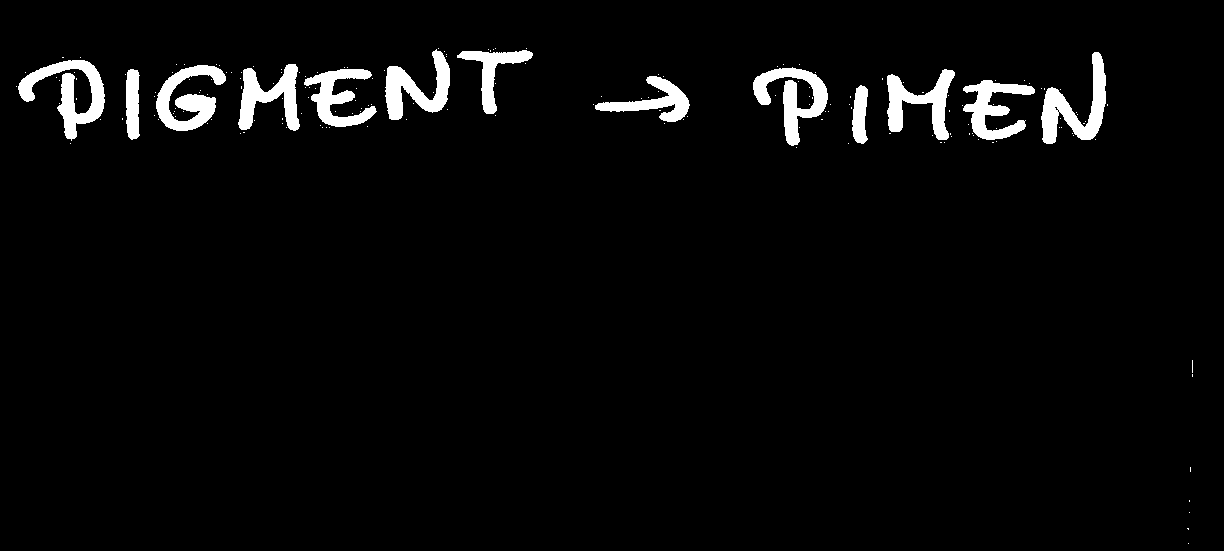 PIGMENT → PIMEN